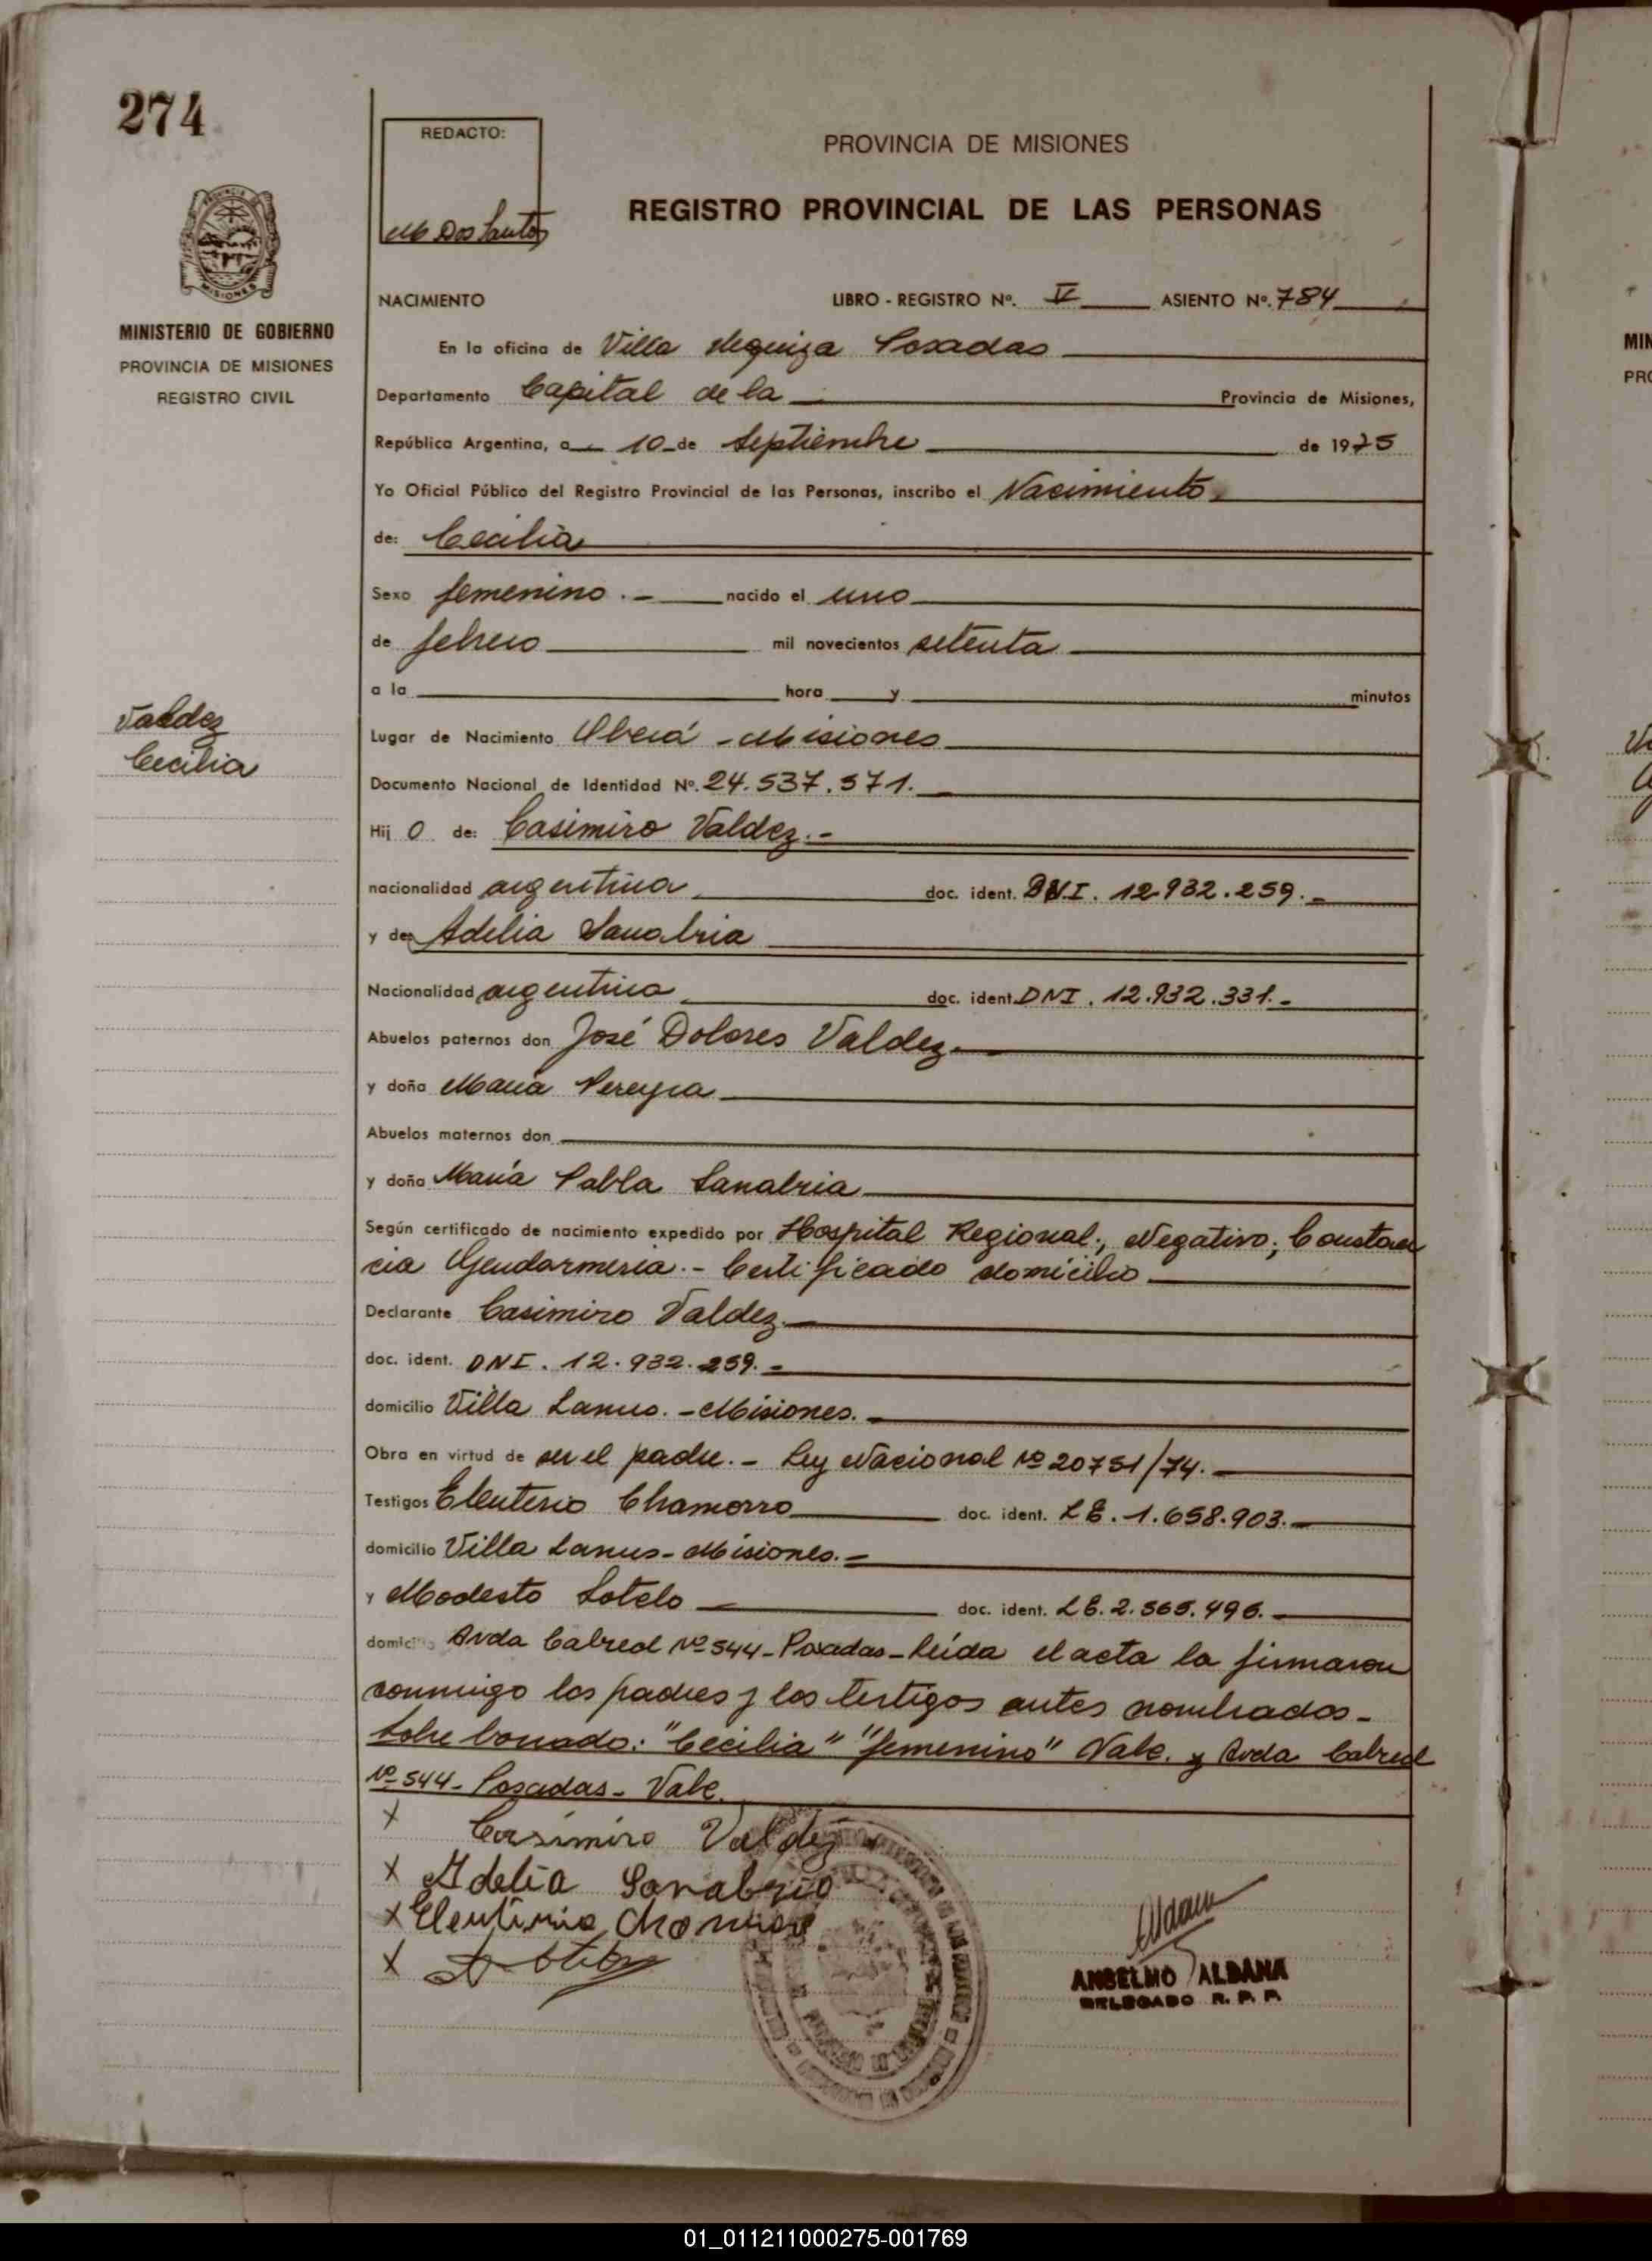 274
REDACTO:
M Dos Santos
PROVINCIA DE MISIONES
REGISTRO PROVINCIAL DE LAS PERSONAS
MISIONES
MINISTERIO DE GOBIERNO
PROVINCIA DE MISIONES
REGISTRO CIVIL
NACIMIENTO LIBRO - REGISTRO Nº. V ASIENTO Nº. 784
En la oficina de Villa Urquiza Posadas
Departamento Capital de la Provincia de Misiones,
República Argentina, a 10 de Septiembre de 1975
Yo Oficial Público del Registro Provincial de las Personas, inscribo el Nacimiento
de: Cecilia
Sexo femenino.- nacido el uno
de febrero mil novecientos setenta
a la hora y minutos
Valdez
Cecilia
Lugar de Nacimiento Oberá - Misiones
Documento Nacional de Identidad Nº. 24.537.571.
Hij o de: Casimiro Valdez.-
nacionalidad argentina doc. ident. DNI. 12.932.259.-
y de Adelia Sanabria
Nacionalidad argentina doc. ident. DNI. 12.932.331.-
Abuelos paternos don José Dolores Valdez
y doña María Pereyra
Abuelos maternos don
y doña María Pabla Sanabria
Según certificado de nacimiento expedido por Hospital Regional; Negativo; Constan
cia Gendarmeria.- Certificado domicilio
Declarante Casimiro Valdez.
doc. ident. DNI. 12.932.259.-
domicilio Villa Lanus.-Misiones.-
Obra en virtud de ser el padre.- Ley Nacional Nº 20751/74.-
Testigos Eleuterio Chamorro doc. ident. LE. 1.658.903.-
domicilio Villa Lanus-Misiones.-
y Modesto Sotelo doc. ident. LE. 2.565.496.-
domicilio Avda Cabred Nº 544-Posadas-Leída el acta la firmaron
conmigo los padres y los testigos antes nombrados-
Sobre borrado: "Cecilia" "femenino" Vale. y Avda Cabred
Nº 544- Posadas- Vale.
x Casimiro Valdez
x Adelia Sanabria
x Eleuterio Chamorro
x
ANSELMO ALDANA
DELEGADO R. P. P.
MIN
PRO
01_011211000275-001769